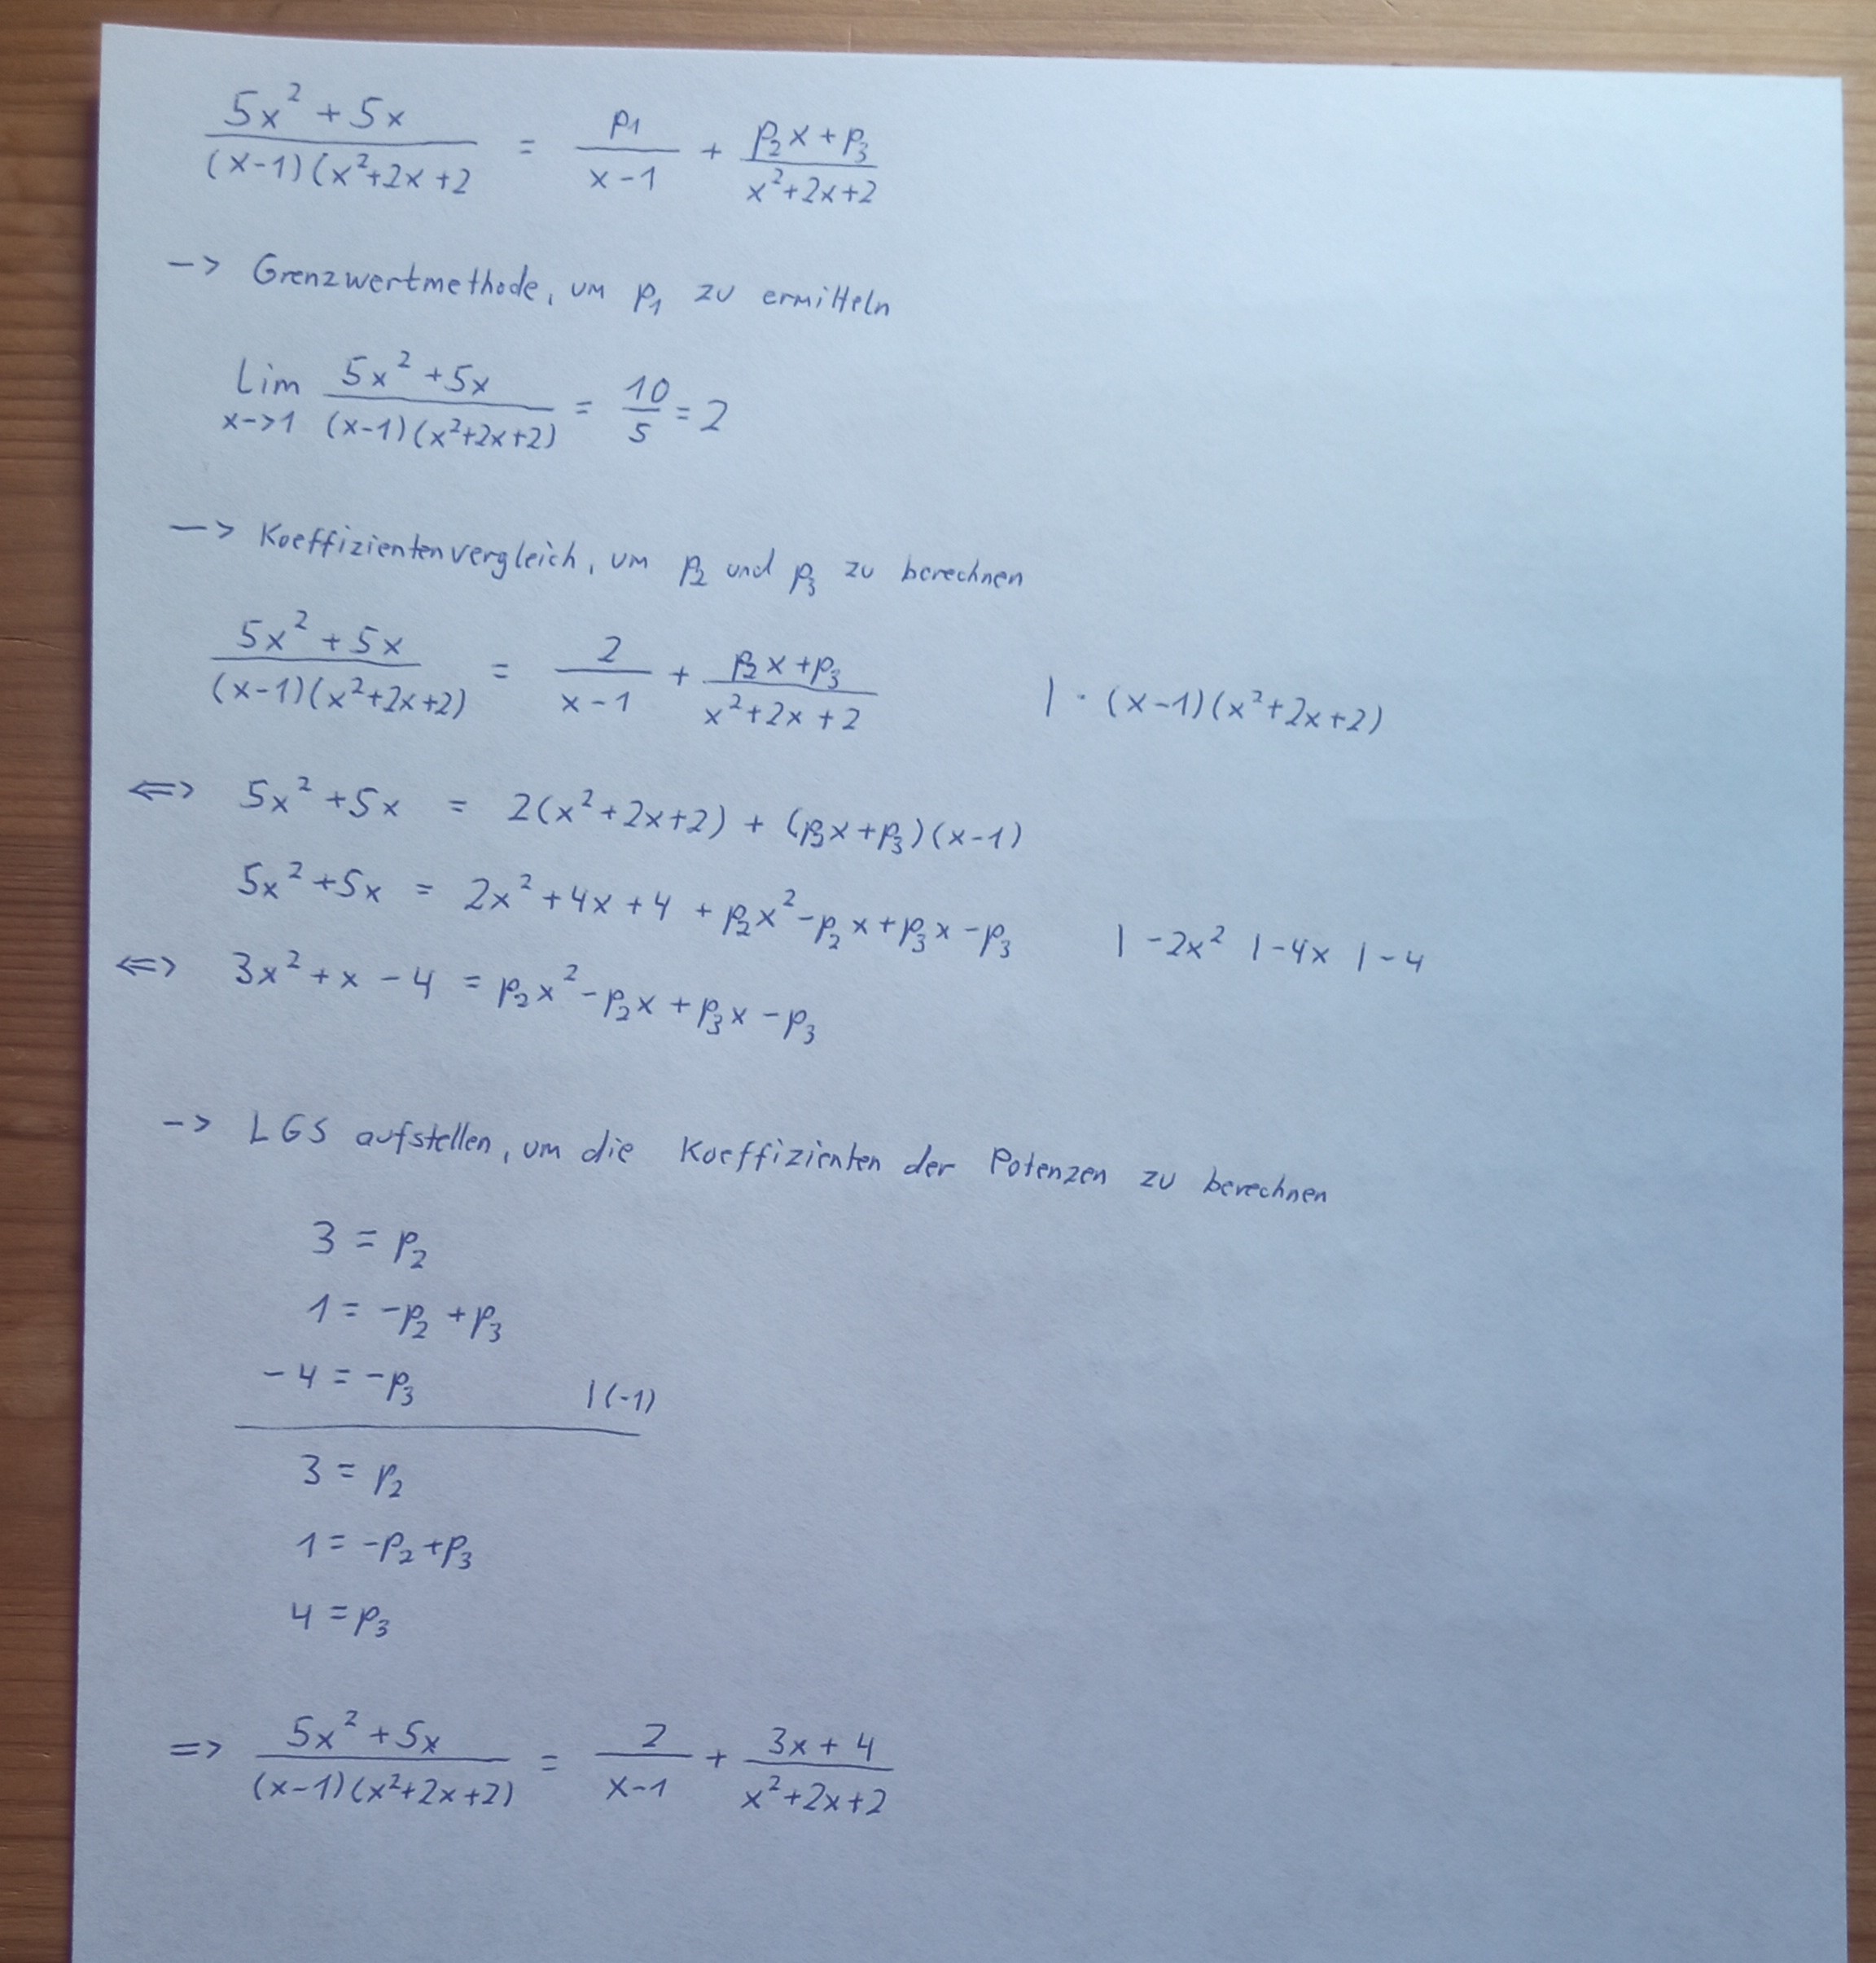 (5x² + 5x)/((x-1)(x²+2x+2) = p₁/(x-1) + (p₂x+p₃)/(x²+2x+2)
-> Grenzwertmethode, um p₁ zu ermitteln
Lim x->1 (5x²+5x)/((x-1)(x²+2x+2)) = 10/5 = 2
-> Koeffizientenvergleich, um p₂ und p₃ zu berechnen
(5x²+5x)/((x-1)(x²+2x+2)) = 2/(x-1) + (p₂x+p₃)/(x²+2x+2) | · (x-1)(x²+2x+2)
<=> 5x²+5x = 2(x²+2x+2) + (p₂x+p₃)(x-1)
5x²+5x = 2x²+4x+4 + p₂x²-p₂x+p₃x-p₃ | -2x² | -4x | -4
<=> 3x²+x-4 = p₂x²-p₂x+p₃x-p₃
-> LGS aufstellen, um die Koeffizienten der Potenzen zu berechnen
3 = p₂
1 = -p₂+p₃
-4 = -p₃ | (-1)
3 = p₂
1 = -p₂+p₃
4 = p₃
=> (5x²+5x)/((x-1)(x²+2x+2)) = 2/(x-1) + (3x+4)/(x²+2x+2)